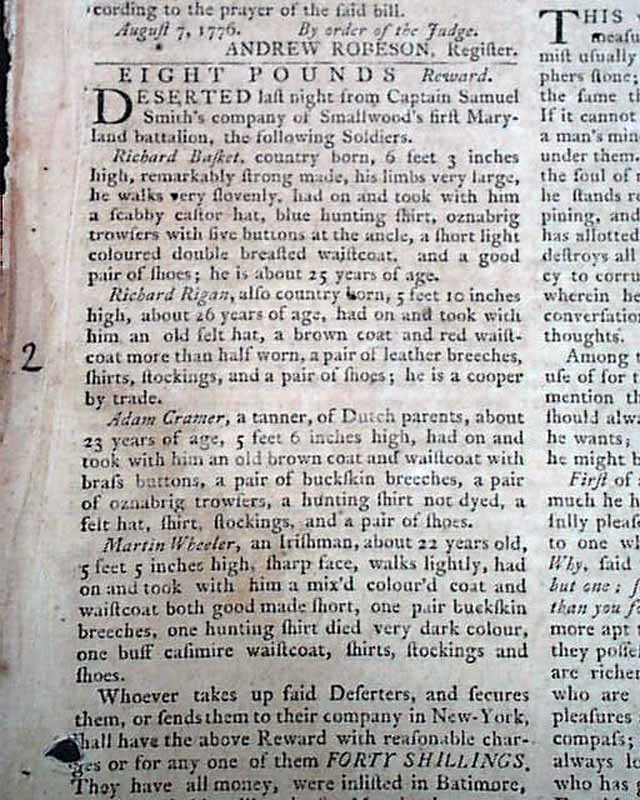 cording to the prayer of the ſaid bill.
Auguſt 7, 1776. By order of the Judge.
ANDREW ROBESON, Regiſter.
EIGHT POUNDS Reward.
DESERTED laſt night from Captain Samuel
Smith's company of Smallwood's firſt Mary-
land battalion, the following Soldiers.
Richard Baſket, country born, 6 feet 3 inches
high, remarkably ſtrong made, his limbs very large,
he walks very ſlovenly, had on and took with him
a ſcabby caſtor hat, blue hunting ſhirt, oznabrig
trowſers with five buttons at the ancle, a ſhort light
coloured double breaſted waiſtcoat, and a good
pair of ſhoes; he is about 25 years of age.
Richard Rigan, alſo country born, 5 feet 10 inches
high, about 26 years of age, had on and took with
him an old felt hat, a brown coat and red waiſt-
coat more than half worn, a pair of leather breeches,
ſhirts, ſtockings, and a pair of ſhoes; he is a cooper
by trade.
Adam Cramer, a tanner, of Dutch parents, about
23 years of age, 5 feet 6 inches high, had on and
took with him an old brown coat and waiſtcoat with
braſs buttons, a pair of buckſkin breeches, a pair
of oznabrig trowſers, a hunting ſhirt not dyed, a
felt hat, ſhirt, ſtockings, and a pair of ſhoes.
Martin Wheeler, an Iriſhman, about 22 years old,
5 feet 5 inches high, ſharp face, walks lightly, had
on and took with him a mix'd colour'd coat and
waiſtcoat both good made ſhort, one pair buckſkin
breeches, one hunting ſhirt died very dark colour,
one buff caſimire waiſtcoat, ſhirts, ſtockings and
ſhoes.
Whoever takes up ſaid Deſerters, and ſecures
them, or ſends them to their company in New-York,
ſhall have the above Reward with reaſonable char-
ges or for any one of them FORTY SHILLINGS.
They have all money, were inliſted in Batimore,
2
THIS
meaſu
miſt uſually
phers ſtone;
the ſame th
If it cannot
a man's min
under them.
the ſoul of
he ſtands re
pining, and
has allotted
deſtroys all
cy to corru
wherein he
converſation
thoughts.
Among t
uſe of for t
mention th
ſhould alwa
he wants;
he might b
Firſt of
much he h
fully pleaſ
to one wh
Why, ſaid
but one; f
than you f
more apt
they poſſeſ
are richer
who are
pleaſures
compaſs;
always lo
who has